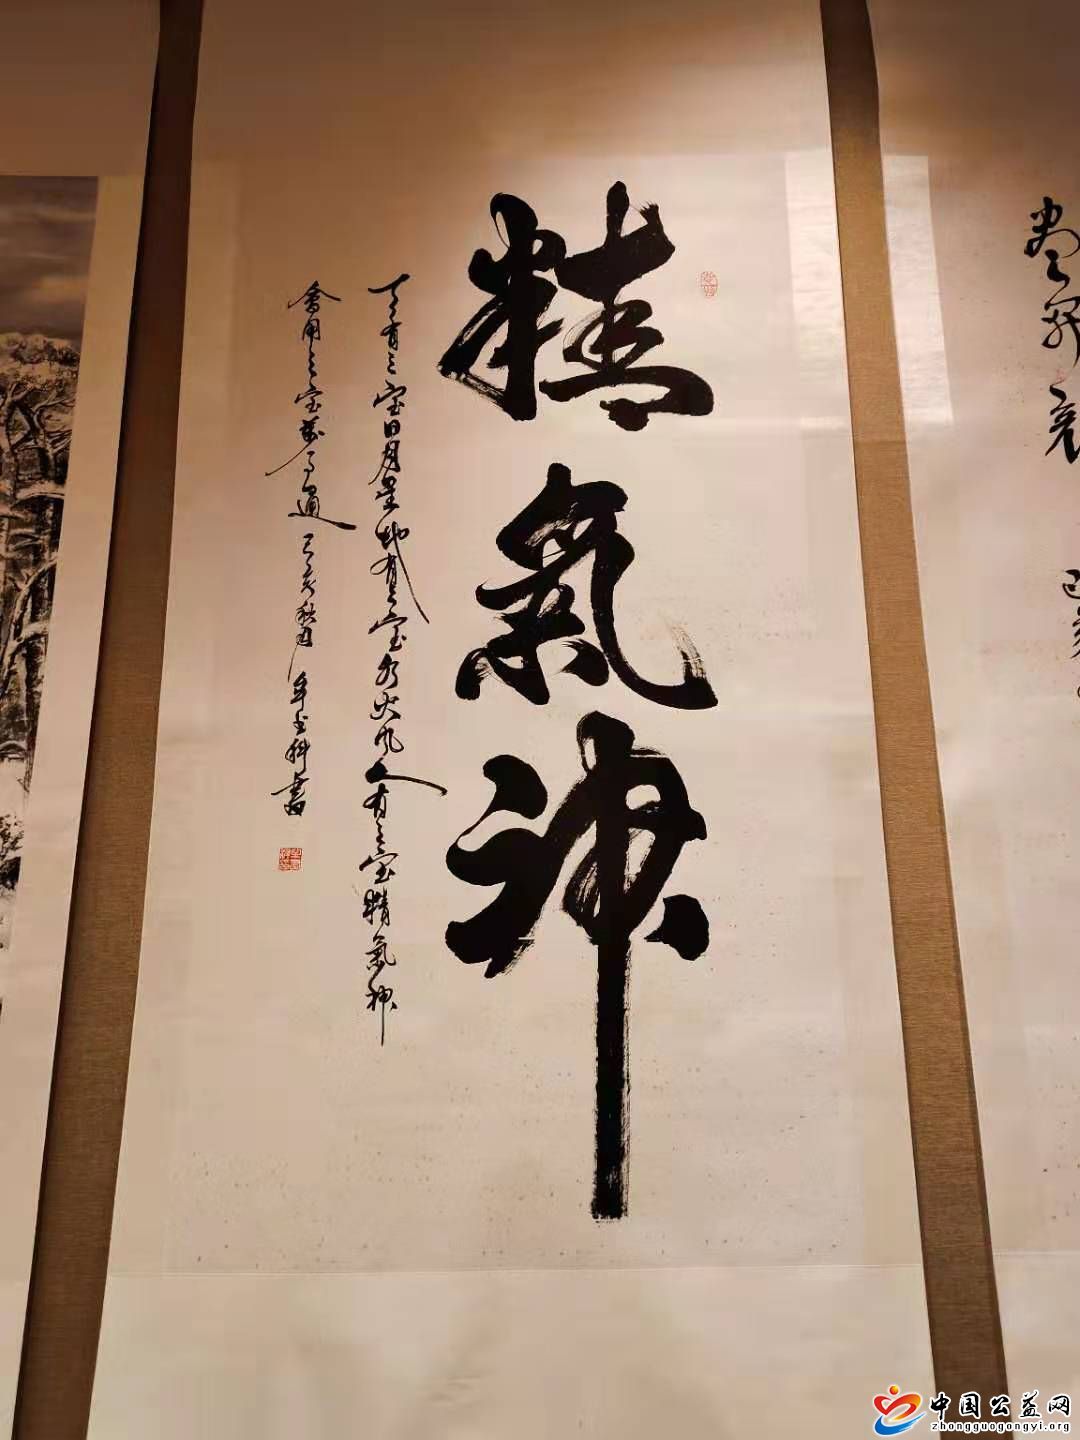 精氣神
天有三宝日月星地有三宝水火风人有三宝精氣神
會用三宝萬事通 己亥秋月 牟書科書
中国公益网
zhongguogongyi.org